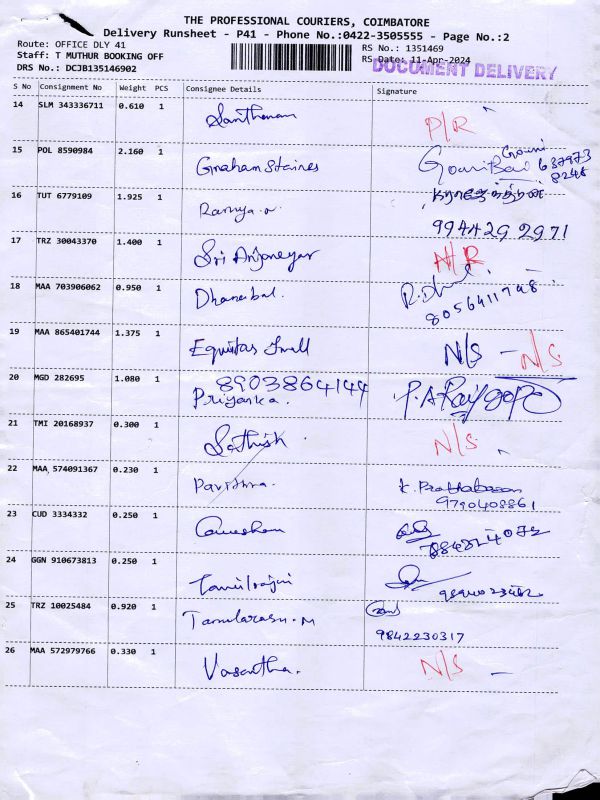 THE PROFESSIONAL COURIERS, COIMBATORE
Delivery Runsheet - P41 - Phone No.:0422-3505555 - Page No.:2
Route: OFFICE DLY 41
RS No.: 1351469
Staff: T MUTHUR BOOKING OFF
RS Date: 11-Apr-2024
DOCUMENT DELIVERY
DRS No.: DCJB135146902
S No Consignment No Weight PCS Consignee Details Signature
14 SLM 343336711 0.610 1 Santhanam P/R
15 POL 8590984 2.160 1 Graham Staines Gowri Bai Gowri 637973
8248
16 TUT 6779109 1.925 1 Ramya
9944292971
17 TRZ 30043370 1.400 1 Sri Anjaneyar N/R
18 MAA 703906062 0.950 1 Dhanabal.
8056411748
19 MAA 865401744 1.375 1 Equitas Small N/S - N/S
20 MGD 282695 1.080 1 8903864144
Priyanka.
21 TMI 20168937 0.300 1 Sathish N/S
22 MAA 574091367 0.230 1 Pavithra. K. Prathabaran
9790408861
23 CUD 3334332 0.250 1
24 GGN 910673813 0.250 1 Tamilrajni
25 TRZ 10025484 0.920 1 Tamilarasu.M
9842230317
26 MAA 572979766 0.330 1 Vasantha. N/S -